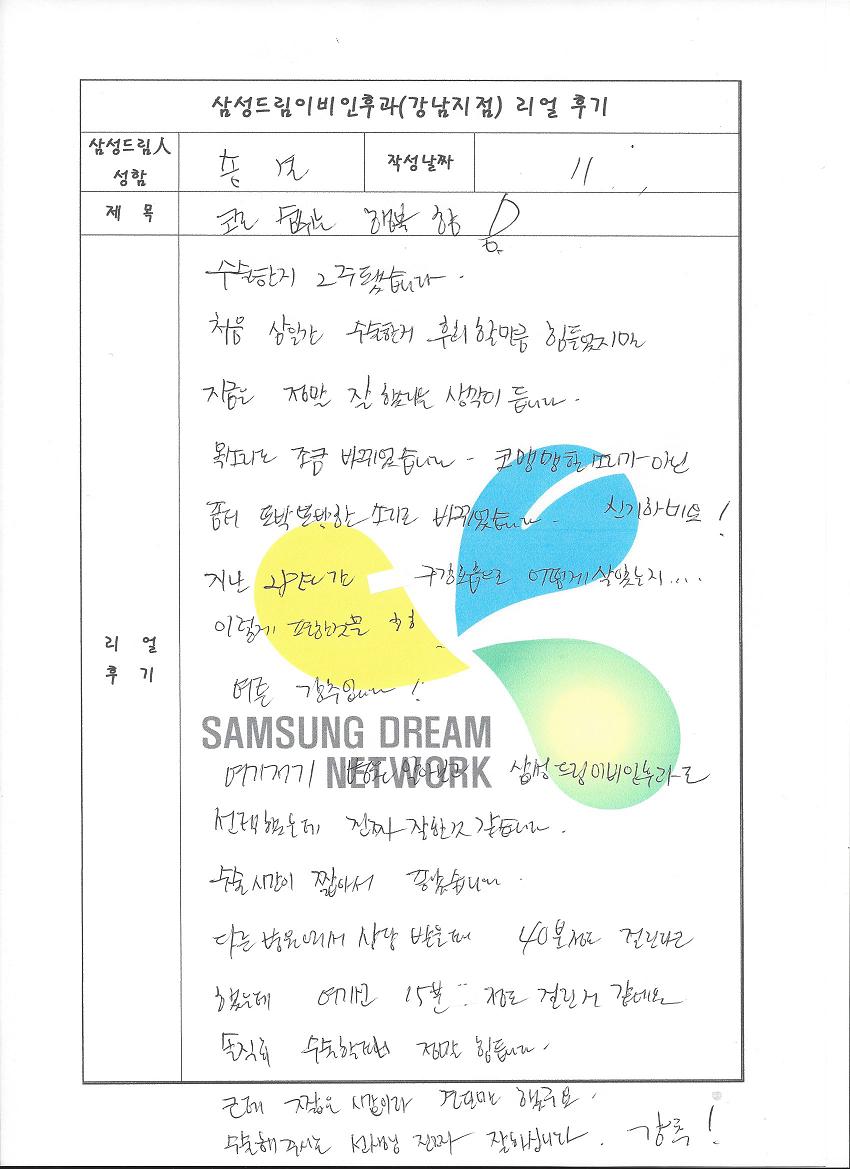 삼성드림이비인후과(강남지점) 리얼 후기
삼성드림人
성함
작성날짜
11
제 목
코로 숨쉬는 행복 함
리 얼
후 기
수술한지 2주됐습니다.
처음 삼일간 수술한게 후회할만큼 힘들었지만
지금은 정말 잘했다는 생각이 듭니다.
목소리도 조금 바뀌었습니다. 코맹맹한 소리가 아닌
소리로 바뀌었습니다. 신기하네요!
지난 구강호흡으로 어떻게 살았는지....
이렇게 편한것을
강추입니다!
SAMSUNG DREAM
NETWORK
여기저기 삼성드림이비인후과로
선택했는데 진짜 잘한것 같습니다.
수술시간이 짧아서 좋았습니다.
다른 병원에서 상담 받을때 40분정도 걸린다고
했는데 여기는 15분.. 정도 걸린거 같네요
솔직히 정말 힘듭니다.
근데 짧은 시간이라
수술해주시는 선생님 진짜 잘하십니다. 강추!